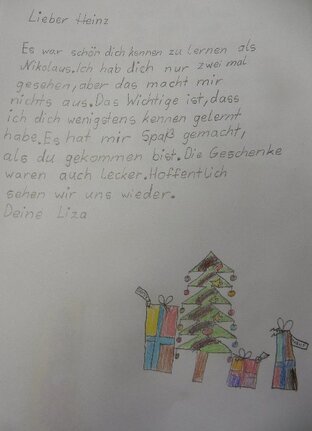 Lieber Heinz
Es war schön dich kennen zu lernen als
Nikolaus.Ich hab dich nur zwei mal
gesehen,aber das macht mir
nichts aus.Das Wichtige ist,dass
ich dich wenigstens kennen gelernt
habe.Es hat mir Spaß gemacht,
als du gekommen bist.Die Geschenke
waren auch lecker.Hoffentlich
sehen wir uns wieder.
Deine Liza